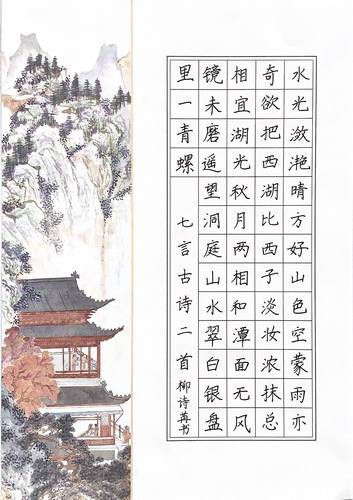 水光潋滟晴方好山色空蒙雨亦
奇欲把西湖比西子淡妆浓抹总
相宜湖光秋月两相和潭面无风
镜未磨遥望洞庭山水翠白银盘
里一青螺 七言古诗二首 柳诗苒书